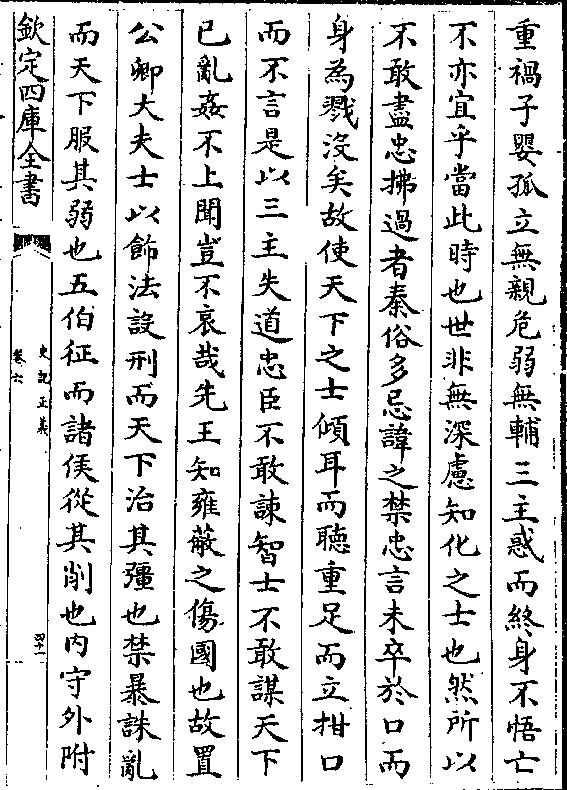 重禍子嬰孤立無親危弱無輔三主惑而終身不悟亡
不亦宜乎當此時也世非無深慮知化之士也然所以
不敢盡忠拂過者秦俗多忌諱之禁忠言未卒於口而
身為戮沒矣故使天下之士傾耳而聽重足而立拑口
而不言是以三主失道忠臣不敢諫智士不敢謀天下
已亂姦不上聞豈不哀哉先王知雍蔽之傷國也故置
公卿大夫士以飾法設刑而天下治其彊也禁暴誅亂
而天下服其弱也五伯征而諸侯從其削也內守外附
欽定四庫全書
史記正義
卷六
四十一